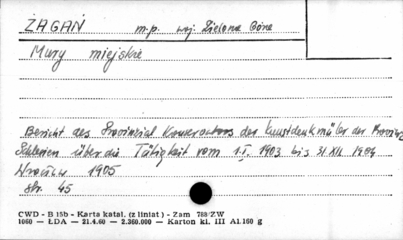 ŻAGAŃ m.p. woj. Zielona Góra
Mury miejskie
Bericht des Provinzial Konservators der Kunstdenkmäler der Provinz
Schlesien über die Tätigkeit vom 1.I. 1903 bis 31.XII. 1904
Wrocław 1905
str. 45
CWD - B 15b - Karta katal. (z liniat) - Zam 788/ZW
1060 — ŁDA — 21.4.60 — 2.360.000 — Karton kl. III A1.160 g